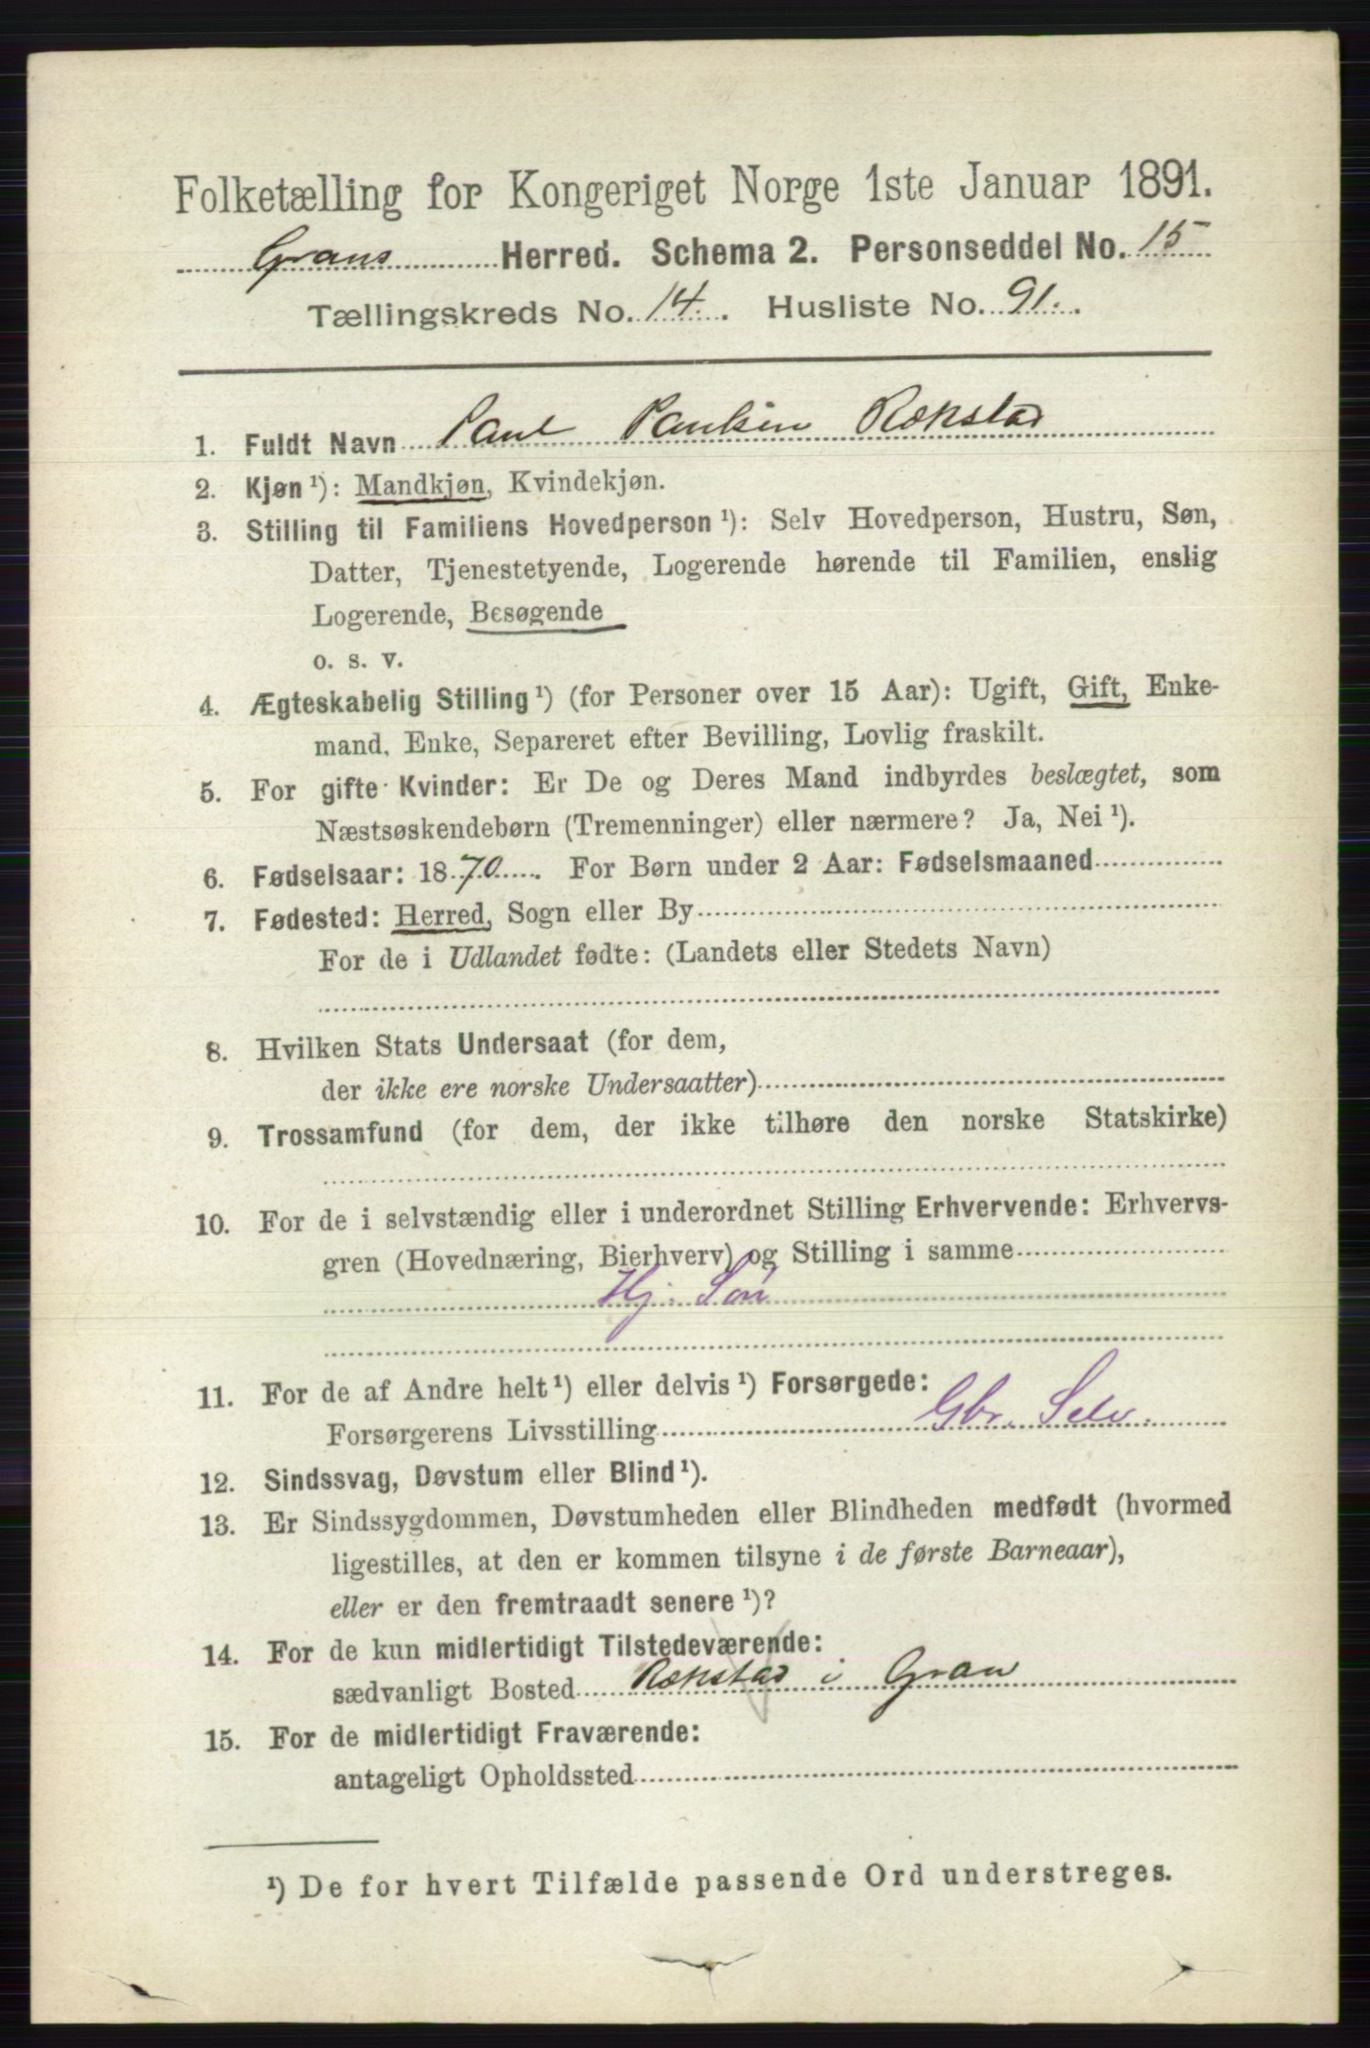 Folketælling for Kongeriget Norge 1ste Januar 1891.
Grans Herred. Schema 2. Personseddel No. 15
Tællingskreds No. 14. Husliste No. 91.
1. Fuldt Navn Paul Paulsen Rækstad
2. Kjøn ¹): Mandkjøn, Kvindekjøn.
3. Stilling til Familiens Hovedperson ¹): Selv Hovedperson, Hustru, Søn,
Datter, Tjenestetyende, Logerende hørende til Familien, enslig
Logerende, Besøgende
o. s. v.
4. Ægteskabelig Stilling ¹) (for Personer over 15 Aar): Ugift, Gift, Enke-
mand, Enke, Separeret efter Bevilling, Lovlig fraskilt.
5. For gifte Kvinder: Er De og Deres Mand indbyrdes beslægtet, som
Næstsøskendebørn (Tremenninger) eller nærmere? Ja, Nei ¹).
6. Fødselsaar: 1870. For Børn under 2 Aar: Fødselsmaaned
7. Fødested: Herred, Sogn eller By
For de i Udlandet fødte: (Landets eller Stedets Navn)
8. Hvilken Stats Undersaat (for dem,
der ikke ere norske Undersaatter)
9. Trossamfund (for dem, der ikke tilhøre den norske Statskirke)
10. For de i selvstændig eller i underordnet Stilling Erhvervende: Erhvervs-
gren (Hovednæring, Bierhverv) og Stilling i samme
Hj. Søn
11. For de af Andre helt ¹) eller delvis ¹) Forsørgede:
Forsørgerens Livsstilling Gbr. Selv.
12. Sindssvag, Døvstum eller Blind ¹).
13. Er Sindssygdommen, Døvstumheden eller Blindheden medfødt (hvormed
ligestilles, at den er kommen tilsyne i de første Barneaar),
eller er den fremtraadt senere ¹)?
14. For de kun midlertidigt Tilstedeværende:
sædvanligt Bosted Rækstad i Gran
15. For de midlertidigt Fraværende:
antageligt Opholdssted
¹) De for hvert Tilfælde passende Ord understreges.